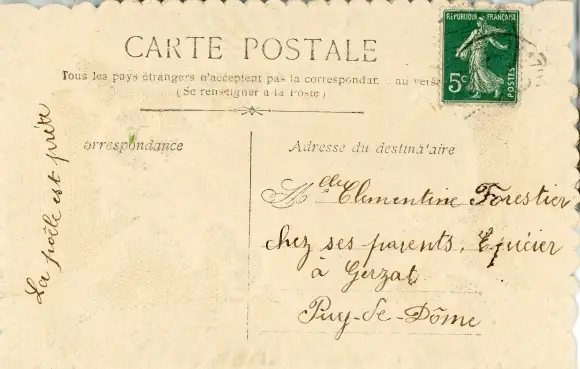 CARTE POSTALE
Tous les pays étrangers n'acceptent pas la correspondan au verso
(Se renseigner à la Poste)
orrespondance
Adresse du destina'aire
La poële est prête
Mlle Clementine Forestier
chez ses parents, Epicier
à Gerzat
Puy-de-Dôme
RÉPUBLIQUE FRANÇAISE
5c
POSTES